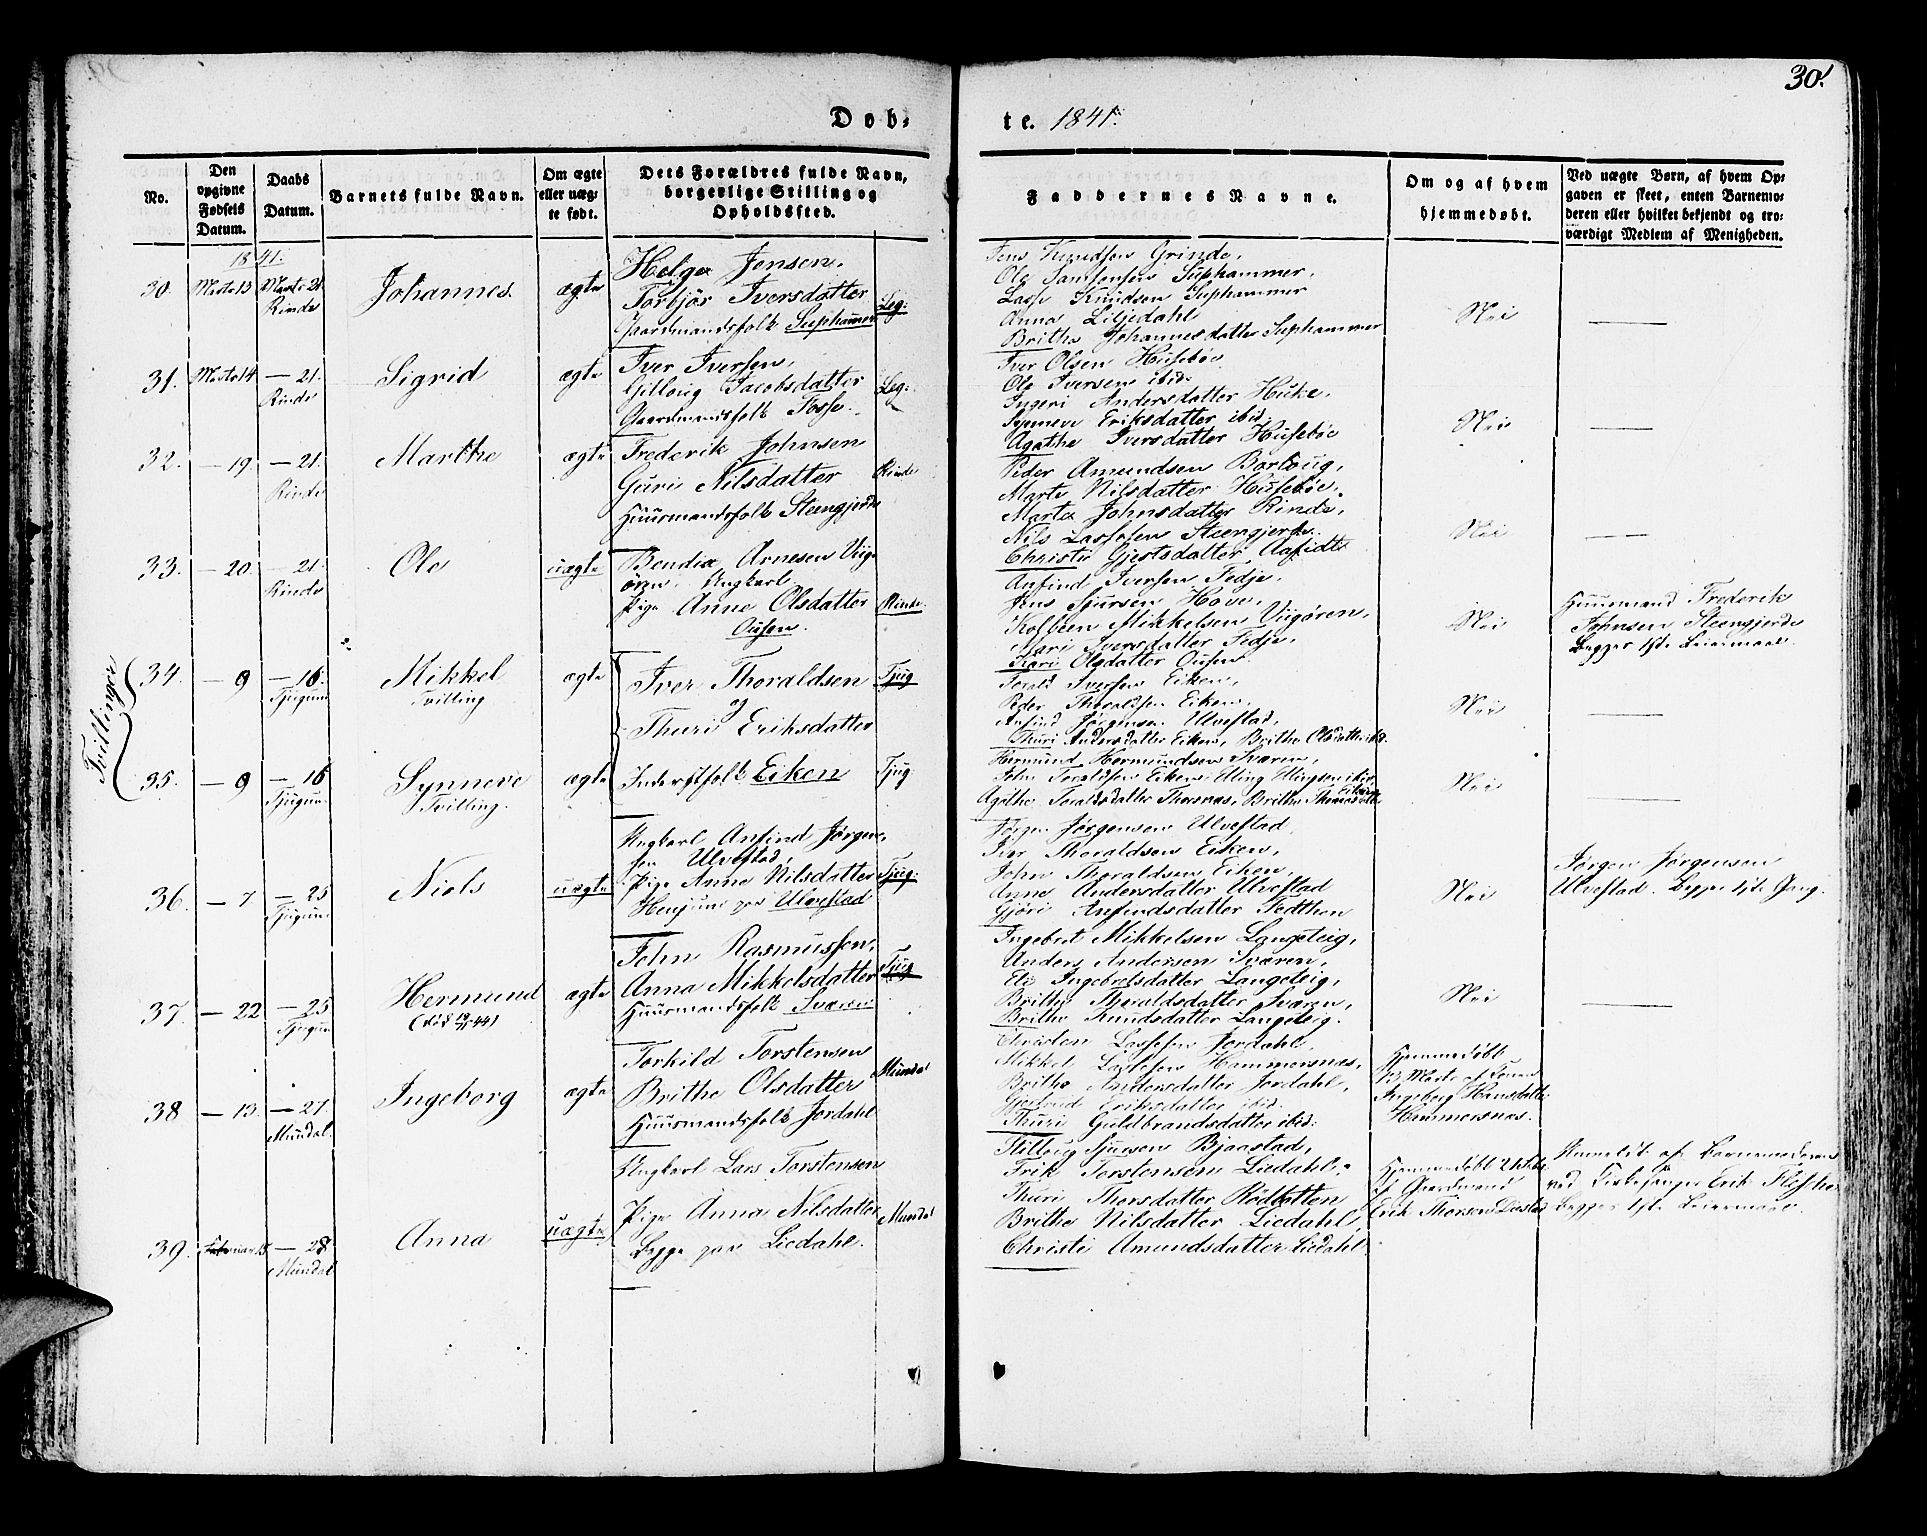 30.
Døb-
te. 1841.
No.
Den opgivne Fødsels Datum.
Daabs Datum.
Barnets fulde Navn.
Om ægte eller uægte født.
Dets Forældres fulde Navn, borgerlige Stilling og Opholdssted.
Faddernes Navne.
Om og af hvem hjemmedøbt.
Ved uægte Børn, af hvem Opgaven er skeet, enten Barnemoderen eller hvilket bekjendt og troværdigt Medlem af Menigheden.
1841.
30. Marts 13 Marts 21 Rinde
Johannes ægte
Helge Jensen,
Torbjør Iversdatter
Gaardmandsfolk Suphammer Leg:
Jens Knudsen Grinde,
Ole Samsonsen Suphammer,
Lasse Knudsen Suphammer
Anna Liljedahl
Brithe Johannesdatter Suphammer
Nei
31. Marts 14 — 21. Rinde
Sigrid ægte
Iver Iversen,
Gilloug Jacobsdatter
Gaardmandsfolk Fosse. Leg:
Iver Olsen Husebøe
Ole Iversen ibid.
Ingeri Andersdatter Huke,
Synneve Eriksdatter ibid.
Agathe Iversdatter Husebøe
Nei
32. — 19. — 21. Rinde
Marthe ægte
Frederik Johnsen
Guri Nilsdatter
Huusmandsfolk Steengjerde Rinde
Peder Amundsen Borloug,
Marte Nilsdatter Husebøe,
Marta Johnsdatter Rinde,
Nils Lassesen Steengjerde
Christi Gjertsdatter
Nei
33. — 20. — 21. Rinde
Ole uægte
Bendix Arnesen Viig-
øren. Ungkarl
Pige Anne Olsdatter
Ousen. Rinde
Anfind Iversen Fedje,
Jens Sjursen Hove,
Kolbeen Mikkelsen Viigøren,
Mari Iversdatter Fedje,
Kari Olsdatter Ousen
Nei
Huusmand Frederik
Johnsen Steengjerde
Begges 1ste Leiermaal.
Tvillinger
34. — 9 — 16. Tjugum
Mikkel
Tvilling
ægte
Iver Thoraldsen
og
Thuri Eriksdatter
Tjug
Torald Iversen Eiken,
Peder Thoraldsen Eiken,
Anfind Jørgensen Ulvestad,
Thuri Andersdatter Eiken, Brithe Olsdatter ibid.
Nei
35. — 9 — 16 Tjugum
Synneve
Tvilling.
ægte
Inderstfolk Eiken Tjug.
Hermund Hermundsen Sværen,
John Toraldsen Eiken, Elling Ellingsen ibid.
Agathe Toraldsdatter Thorsnæs, Brithe Thomasdatter Eiken
Nei
36. — 7 — 25 Tjugum
Niels uægte
Ungkarl Anfind Jørgen-
sen Ulvestad,
Pige Anne Nilsdatter
Henjum paa Ulvestad Tjug:
Jørgen Jørgensen Ulvestad,
Iver Thoraldsen Eiken,
John Thoraldsen Eiken
Anne Andersdatter Ulvestad
Gjøri Anfindsdatter
Nei
Jørgen Jørgensen
Ulvestad. Begges 1ste Gang.
37. — 22 — 25 Tjugum
Hermund
(død 19/11 44)
ægte
John Rasmussen,
Anna Mikkelsdatter
Huusmandsfolk Sværen Tjug
Ingebret Mikkelsen Langeteig,
Anders Andersen Sværen,
Eli Ingebretsdatter Langeteig,
Brithe Thoraldsdatter Sværen,
Brithe Knudsdatter Langeteig.
Nei
38 — 13. — 27. Mundal
Ingeborg ægte
Torkild Torstensen
Brithe Olsdatter
Huusmandsfolk Jordahl Mundal
Christen Lassesen Jordahl,
Mikkel Lassesen Hammersnæs,
Brithe Andersdatter Jordahl,
Gjertrud Eriksdatter ibid.
Thuri Guldbrandsdatter ibid.
Hjemmedøbt
13 Marts af Konen
Ingeborg Hansdatter
Hammersnæs.
39. Februar 15 — 28 Mundal
Anna uægte
Ungkarl Lars Torstensen
Pige Anna Nilsdatter
Begge paa Liedahl. Mundal
Bjaastad,
Erik Torstensen Liedahl,
Thuri Thorsdatter
Brithe Nilsdatter Liedahl,
Christi Amundsdatter Liedahl.
Hjemmedøbt 21 Febr.
af Gaardmand
Erik Thorsen
Anmeldt af Barnemoderen
ved Kirkesanger Erik
Begges 1ste Leiermaal.